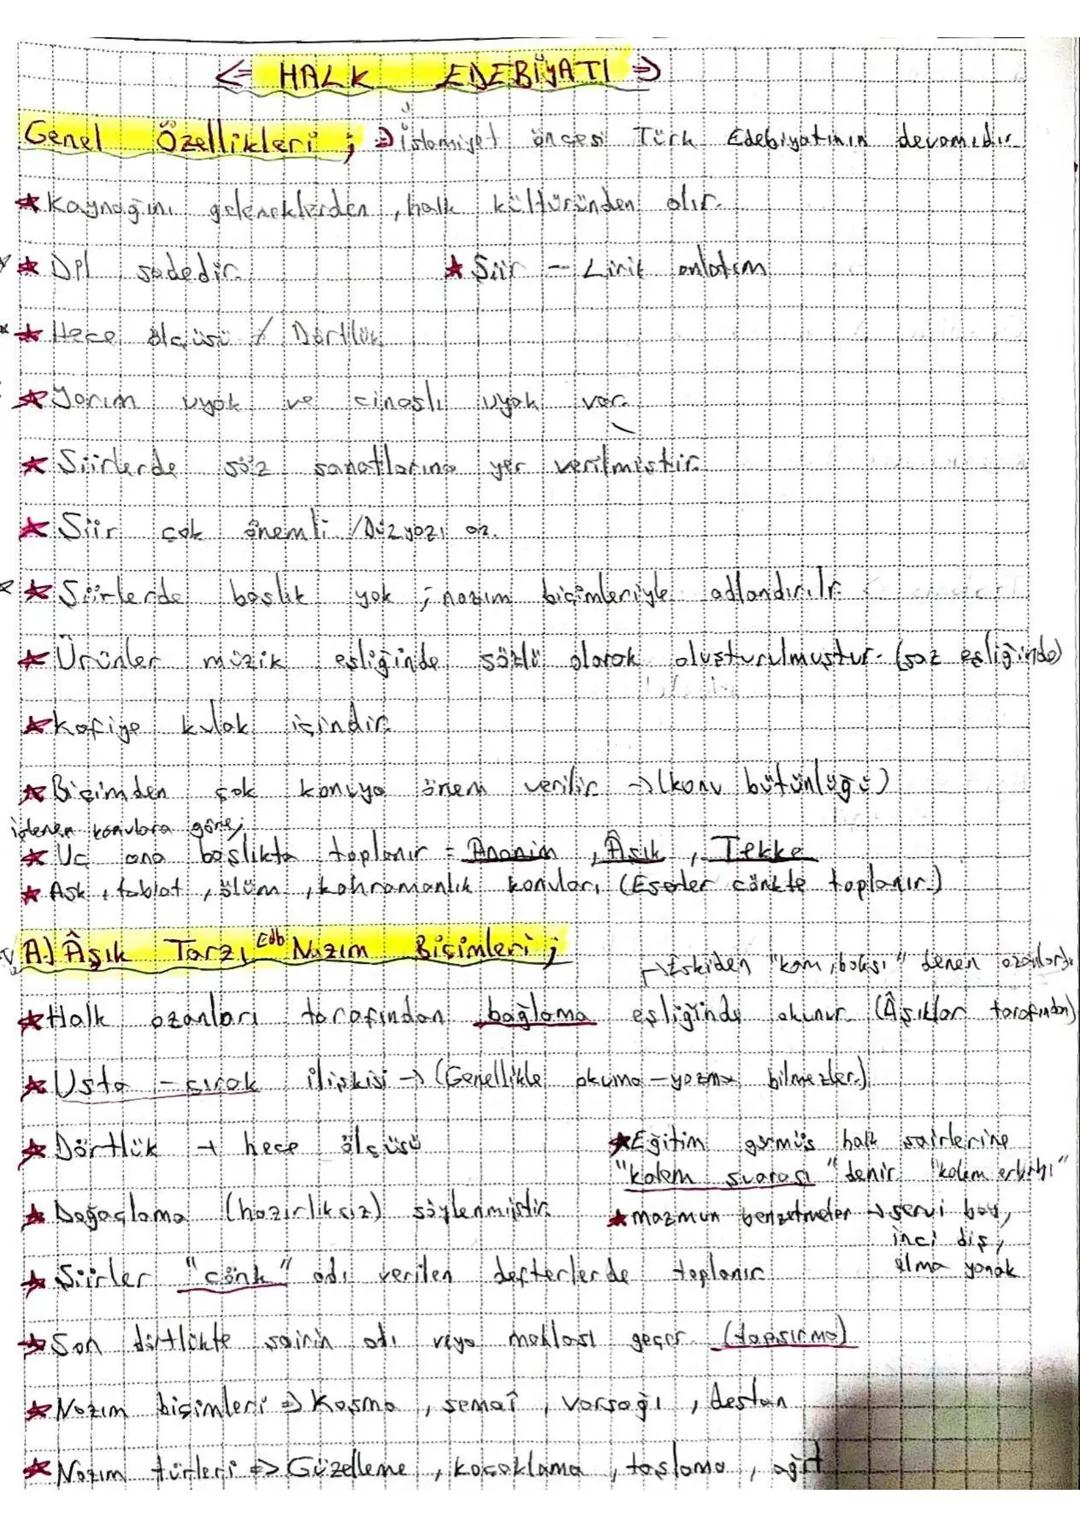 <= HALK EDEBİYATI =>
Genel Özellikleri ; => İslamiyet öncesi Türk Edebiyatının devamıdır
* Kaynağını geleneklerden , halk kültüründen alır.
* Dil sadedir. * Şiir -- Lirik anlatım
* Hece ölçüsü / Dörtlük
* Yarım uyak ve cinaslı uyak var.
* Şiirlerde söz sanatlarına yer verilmiştir.
* Şiir çok önemli / Düzyazı az.
* Şiirlerde başlık yok ; nazım biçimleriyle adlandırılır.
* Ürünler müzik eşliğinde sözlü olarak oluşturulmuştur. (saz eşliğinde)
* Kafiye kulak içindir.
* Biçimden çok konuya önem verilir -> (konu bütünlüğü)
işlenen konulara göre;
* Üç ana başlıkta toplanır = Anonim , Âşık , Tekke
* Aşk , tabiat , ölüm , kahramanlık konuları (Eserler cönkte toplanır.)
A) Âşık Tarzı Edb Nazım Biçimleri ;
-> Eskiden "kam, baksı" denen ozanlardı
* Halk ozanları tarafından bağlama eşliğinde okunur. (Âşıklar tarafından)
* Usta - çırak ilişkisi -> (Genellikle okuma - yazma bilmezler.)
* Dörtlük -> hece ölçüsü * Eğitim görmüş halk şairlerine
"kalem şuarası" denir. "kalem erbabı"
* Doğaçlama (hazırlıksız) söylenmiştir. * mazmun benzetmeler -> servi boy,
inci diş,
elma yanak
* Şiirler "cönk" adı verilen defterlerde toplanır.
* Son dörtlükte şairin adı veya mahlası geçer. (tapşırma)
* Nazım biçimleri => Koşma , semaî , varsağı , destan
* Nazım türleri => Güzelleme , koçaklama , taşlama , ağıt